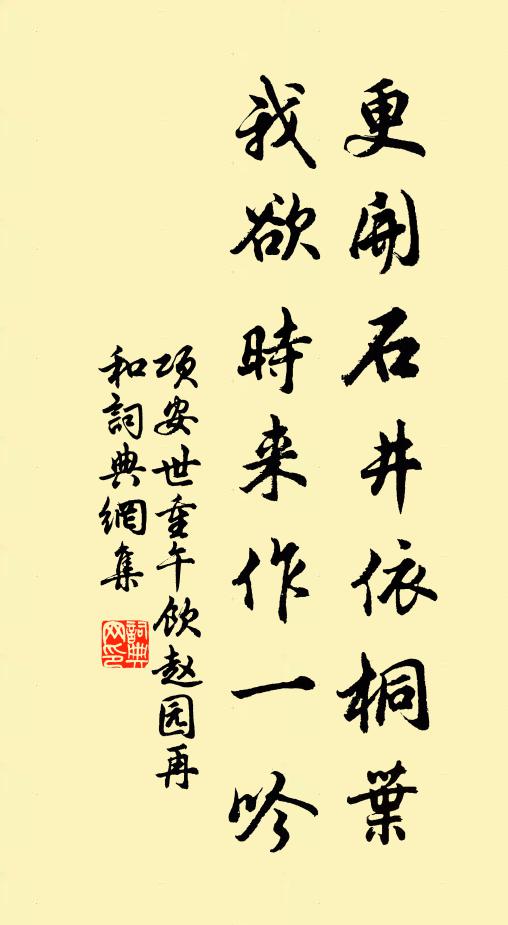 更開石井依桐葉
我欲時来作一吟
項安世重午饮赵园再
和詞典網集
詞典
网印